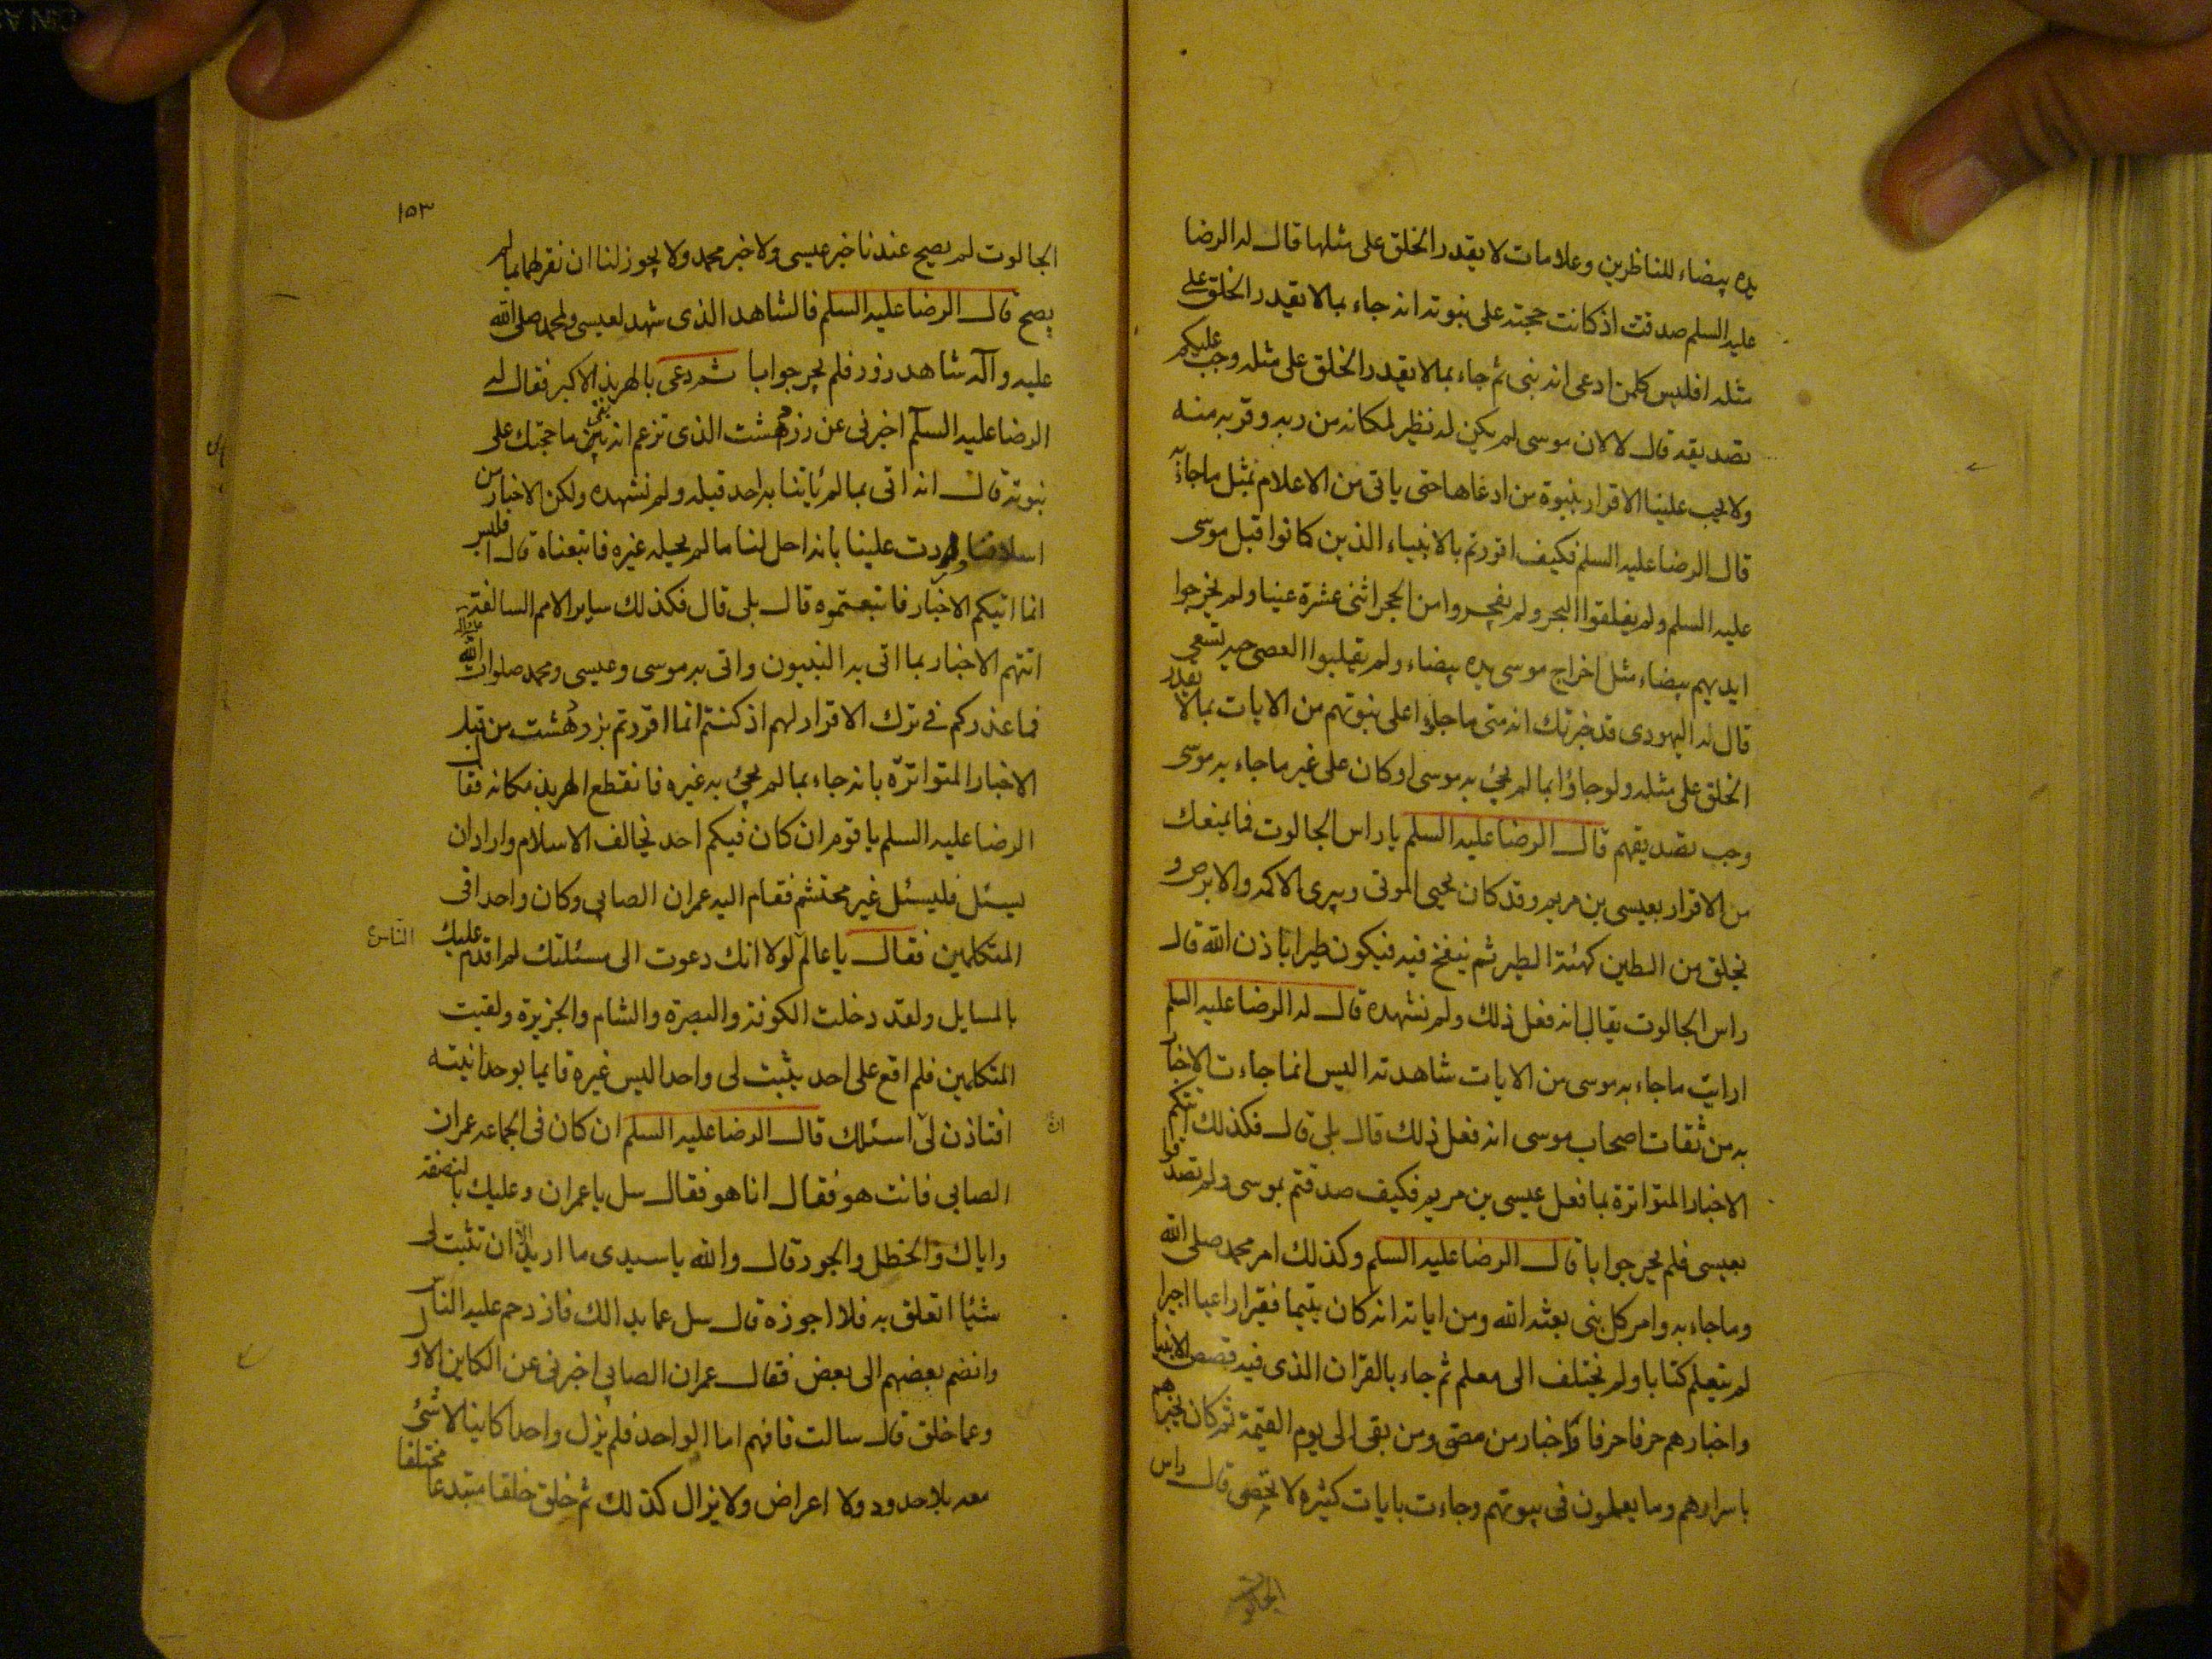 يده بيضاء للناظرين وعلامات لا يقدر الخلق على مثلها قال له الرضا
عليه السلم صدقت اذ كانت حجته على نبوته انه جاء بما لا يقدر الخلق على
مثله افليس كلمن ادعى انه نبى ثم جاء بما لا يقدر الخلق على مثله وجب عليكم
تصديقه قال لا لان موسى لم يكن له نظير لمكانه من ربه وقربه منه
ولا يجب علينا الاقرار بنبوة من ادعاها حتى ياتى من الاعلام بمثل ما جاء
قال الرضا عليه السلم فكيف اقررتم بالانبياء الذين كانوا قبل موسى
عليه السلم ولم يفلقوا البحر ولم يفجروا من الحجر اثنى عشرة عينا ولم يخرجوا
ايديهم بيضاء مثل اخراج موسى يده بيضاء ولم يقلبوا العصى حيه تسعى
قال له اليهودى قد خبرتك انه متى ما جاؤا على نبوتهم من الايات بما لا يقدر
الخلق على مثله ولو جاؤا بما لم يجئ به موسى او كان على غير ما جاء به موسى
وجب تصديقهم قال الرضا عليه السلم يا راس الجالوت فما يمنعك
من الاقرار بعيسى بن مريم وقد كان يحيى الموتى ويبرى الاكمه والابرص و
يخلق من الطين كهيئة الطير ثم ينفخ فيه فيكون طيرا باذن الله قال
راس الجالوت يقال انه فعل ذلك ولم نشهده قال له الرضا عليه السلم
ارايت ما جاء به موسى من الايات شاهدته اليس انما جاءت الاخبار
به من ثقات اصحاب موسى انه فعل ذلك قال بلى قال فكذلك اتتكم
الاخبار المتواترة بما فعل عيسى بن مريم فكيف صدقتم بموسى ولم تصدقوا
بعيسى فلم يحر جوابا قال الرضا عليه السلم وكذلك امر محمد صلى الله
وما جاء به وامر كل نبى بعثه الله ومن اياته انه كان يتيما فقيرا راعيا اجيرا
لم يتعلم كتابا ولم يختلف الى معلم ثم جاء بالقران الذى فيه قصص الانبيا
واخبارهم حرفا حرفا واخبار من مضى ومن بقى الى يوم القيمة ثم كان يخبرهم
باسرارهم وما يعملون فى بيوتهم وجاءت بايات كثيره لا تحصى قال راس
الجالوت
١٥٣
الجالوت لم يصح عندنا خبر عيسى ولا خبر محمد ولا يجوز لنا ان نقر لهما بما لم
يصح قال الرضا عليه السلم فالشاهد الذى شهد لعيسى ولمحمد صلى الله
عليه وآله شاهد زور فلم يحر جوابا ثم دعى بالهربذ الاكبر فقال له
الرضا عليه السلم اخبرنى عن زردهشت الذى تزعم انه نبى ما حجتك على
نبوته قال انه اتى بما لم ياتنا به احد قبله ولم نشهده ولكن الاخبار من
اسلافنا وردت علينا بانه احل لنا ما لم يحله غيره فاتبعناه قال افليس
انما اتيكم الاخبار فاتبعتموه قال بلى قال فكذلك ساير الامم السالفة
اتتهم الاخبار بما اتى به النبيون واتى به موسى وعيسى ومحمد صلوات الله
فما عذركم في ترك الاقرار لهم اذ كنتم انما اقررتم بزردهشت من قبل
الاخبار المتواترة بانه جاء بما لم يجئ به غيره فانقطع الهربذ مكانه فقال
الرضا عليه السلم يا قوم ان كان فيكم احد يخالف الاسلام واراد ان
يسئل فليسئل غير محتشم فقام اليه عمران الصابى وكان واحدا فى
المتكلمين فقال يا عالم لولا انك دعوت الى مسئلتك لم اقدم عليك
الناس
بالمسايل ولقد دخلت الكوفة والبصرة والشام والجزيرة ولقيت
المتكلمين فلم اقع على احد يثبت لى واحدا ليس غيره قايما بوحدانيته
افتاذن لى اسئلك قال الرضا عليه السلم ان كان فى الجماعه عمران
الصابى فانت هو فقال انا هو فقال سل يا عمران وعليك بالنصفة
واياك والخطل والجور قال والله يا سيدى ما اريد الا ان تثبت لى
شيئا اتعلق به فلا اجوزه قال سل عما بدا لك فازدحم عليه الناس
وانضم بعضهم الى بعض فقال عمران الصابى اخبرنى عن الكاين الاول
وعما خلق قال سالت فافهم اما الواحد فلم يزل واحدا كاينا لا شئ
معه بلا حدود ولا اعراض ولا يزال كذلك ثم خلق خلقا مبتدعا مختلفا